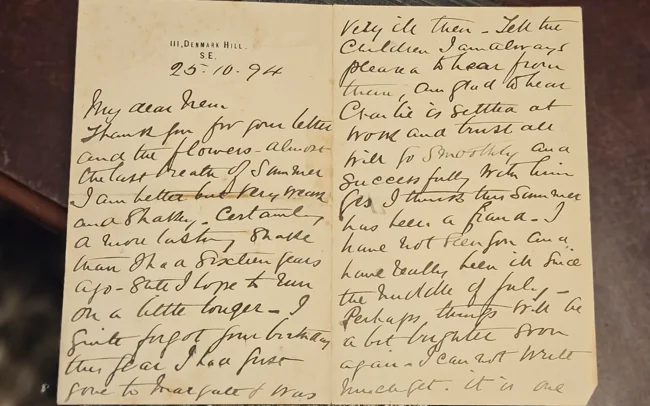 111, DENMARK HILL.
S.E.
25.10.94
My dear
Thank you for your letter
and the flowers - almost
the last breath of Summer
I am better but very weak
and Shaky - Certainly
a more lasting Shake
than I had Sixteen years
ago - Still I hope to run
on a little longer - I
quite forgot your birthday
this year I had just
gone to Margate & was
very ill then - Tell the
Children I am always
pleased to hear from
them, am glad to hear
Charlie is settled at
work and trust all
will go Smoothly and
Successfully with him
Yes I think this Summer
has been a fraud - I
have not seen you and
have really been ill since
the middle of July -
Perhaps things will be
a bit brighter soon
again - I can not write
much yet. it is one